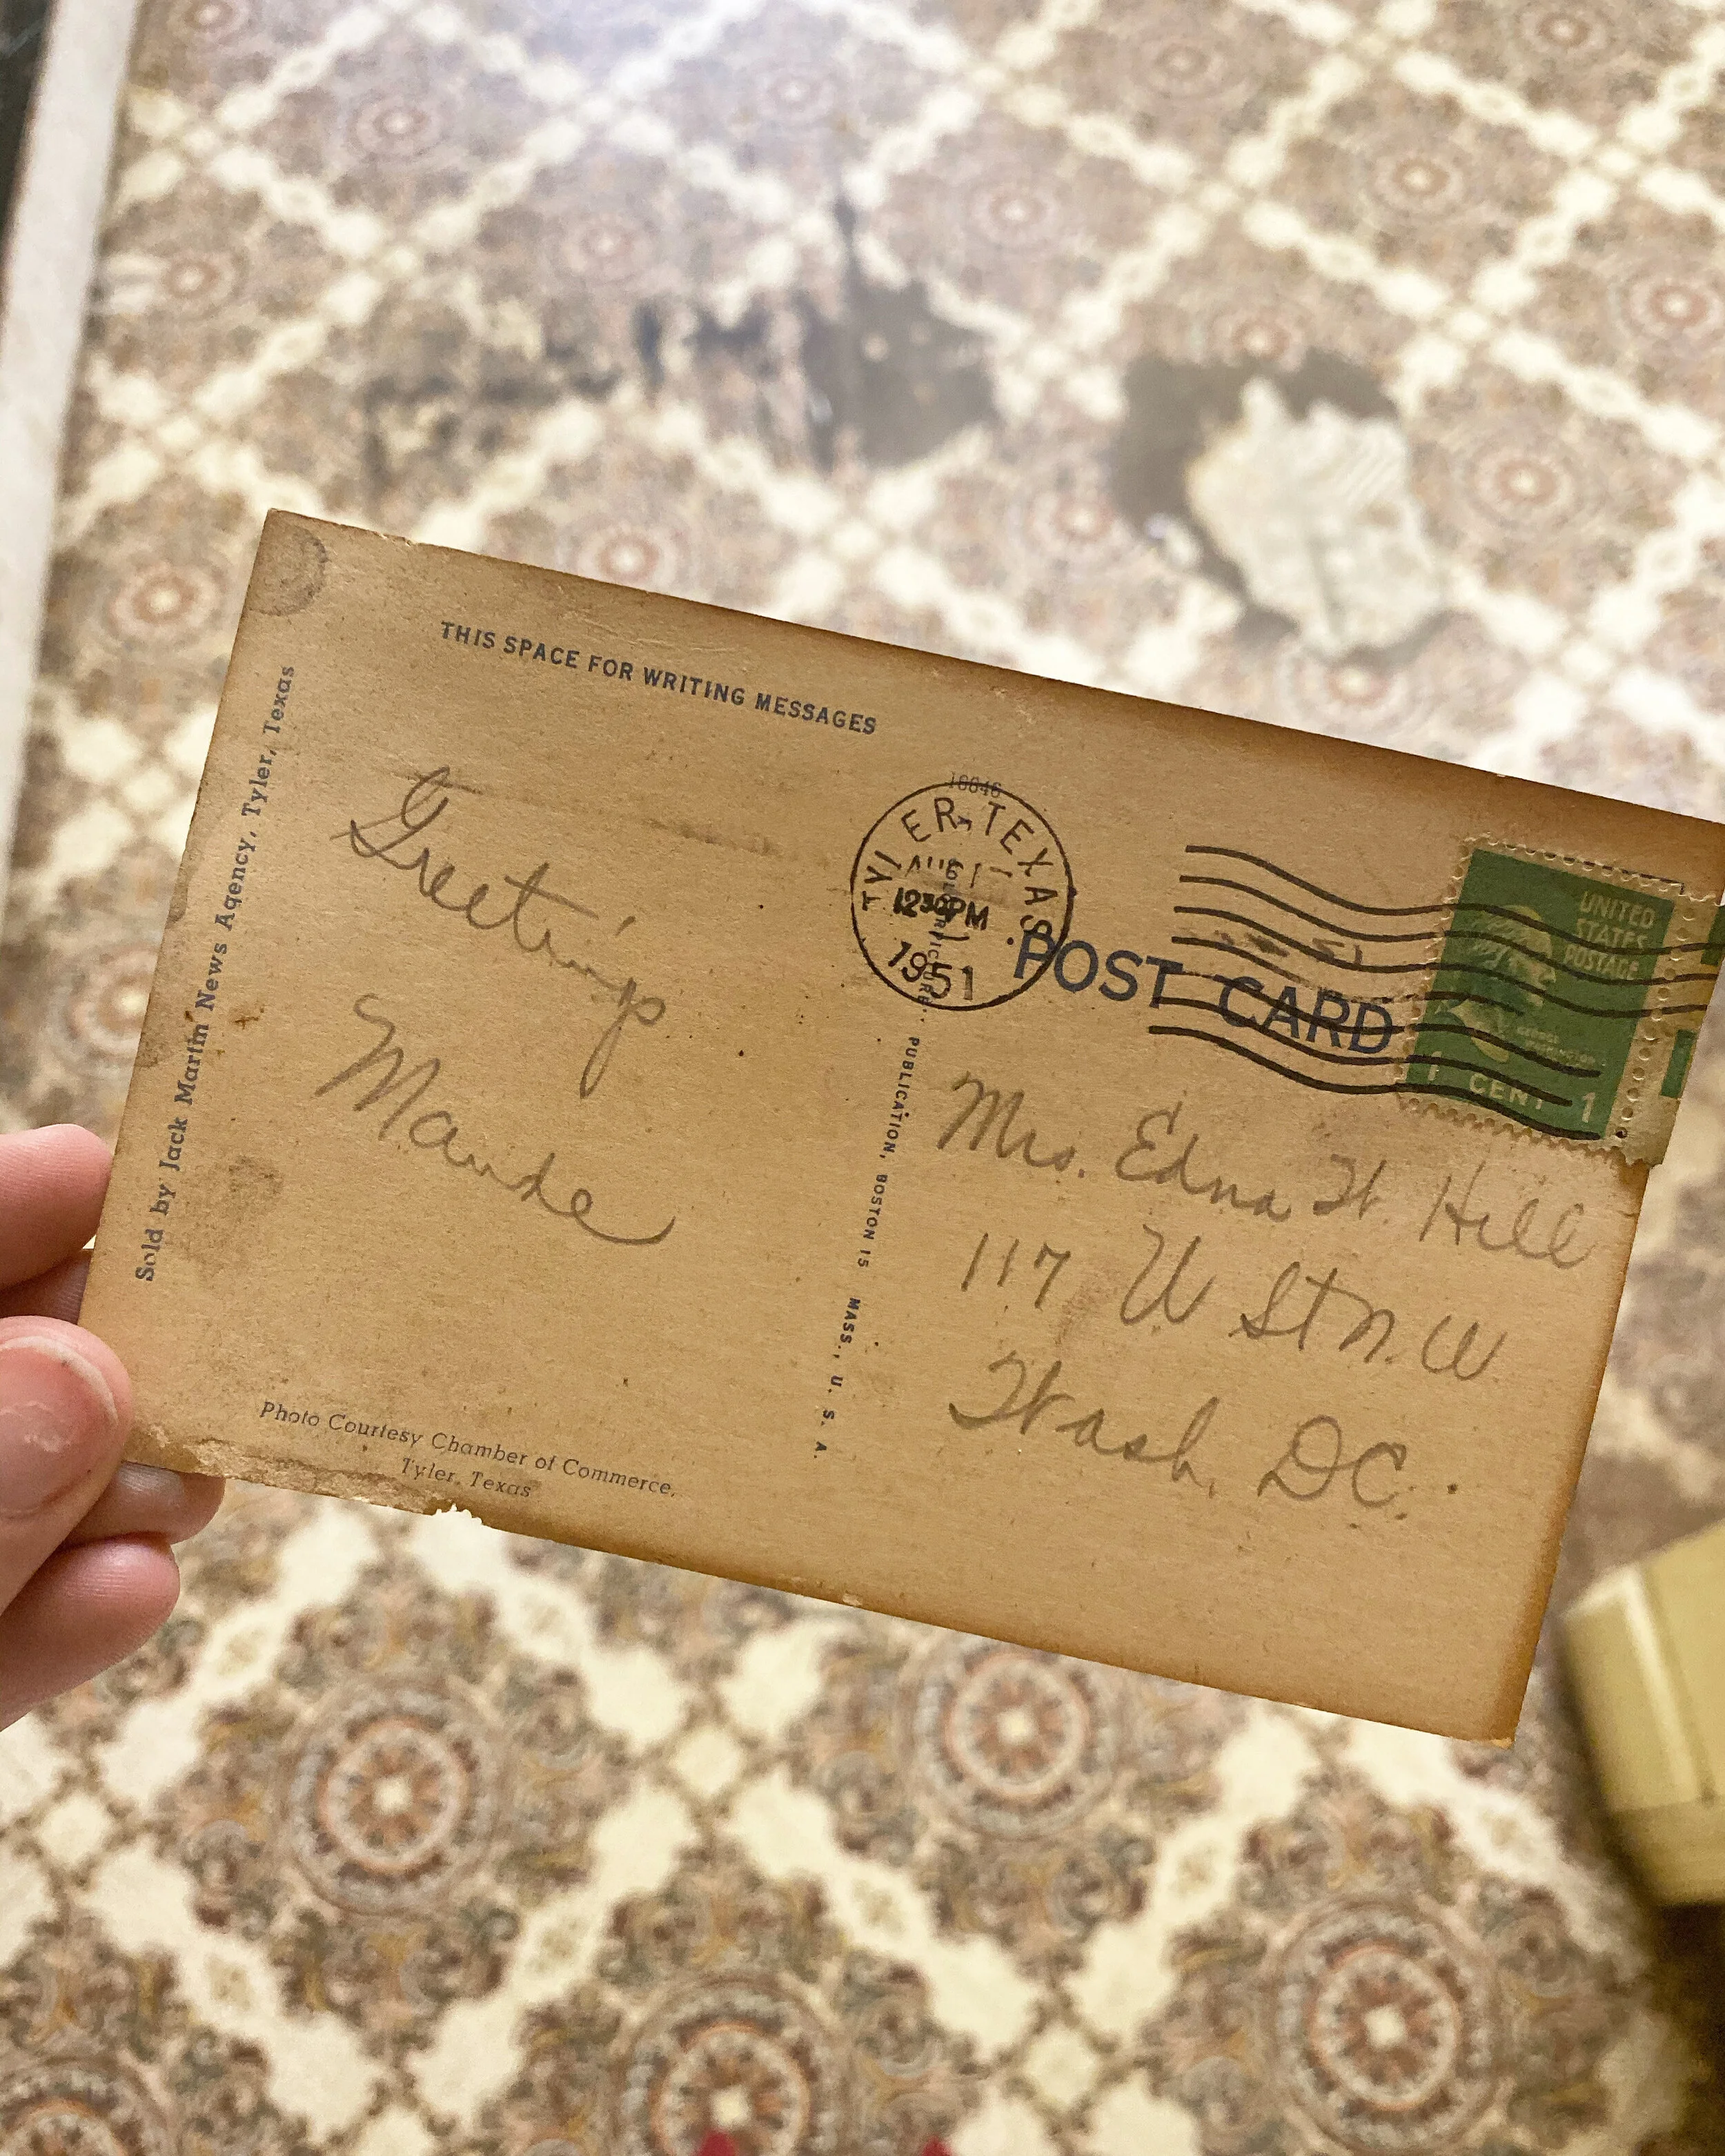 THIS SPACE FOR WRITING MESSAGES
Sold by Jack Martin News Agency, Tyler, Texas
Greetings
Maude
Photo Courtesy Chamber of Commerce,
Tyler, Texas
PUBLICATION, BOSTON 15 MASS., U. S. A.
16646
TYLER TEXAS
AUG 1
12 30 PM
1951
POST CARD
UNITED
STATES
POSTAGE
GEORGE
WASHINGTON
1 CENT 1
Mrs. Edna H. Hill
117 U St N.W.
Wash, DC.